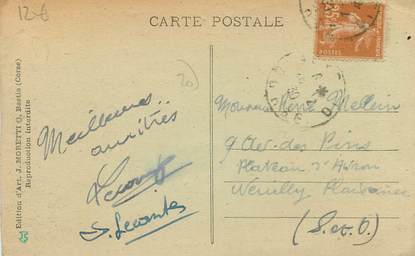 12-6
CARTE POSTALE
25c
POSTES
20
Edition d'Art. J. MORETTI Q, Bastia (Corse)
Reproduction interdite
Meilleures
amitiés
S. Lecomte
Monsieur René
9 Av. des Pins
Plateau d'Avron
Neuilly Plaisance
(S. et O.)